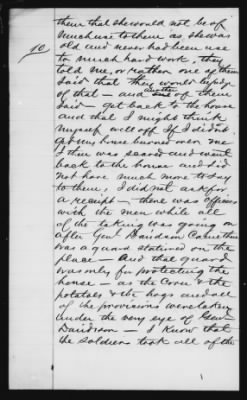 them that she would not be of
much use to them as she was
old and never had been use
to much hard work, they
told me, or rather one of them
said that they would be judge
of that — and another one of them
said — get back to the house
and that I might think
myself well off If I didn't
get my house burned over me
I then was scared and went
back to the house and did
not have much more to say
to them, I did not ask for
a receipt — there was officers
with the men while all
of the taking was going on
after Genl Davidson came there
was a guard stationed on the
place — and that guard
was only for protecting the
house — as the Corn & the
potatoes & the hogs and all
of the provisions were taken
under the very eye of Genl
Davidson — I know that
the soldiers took all of the